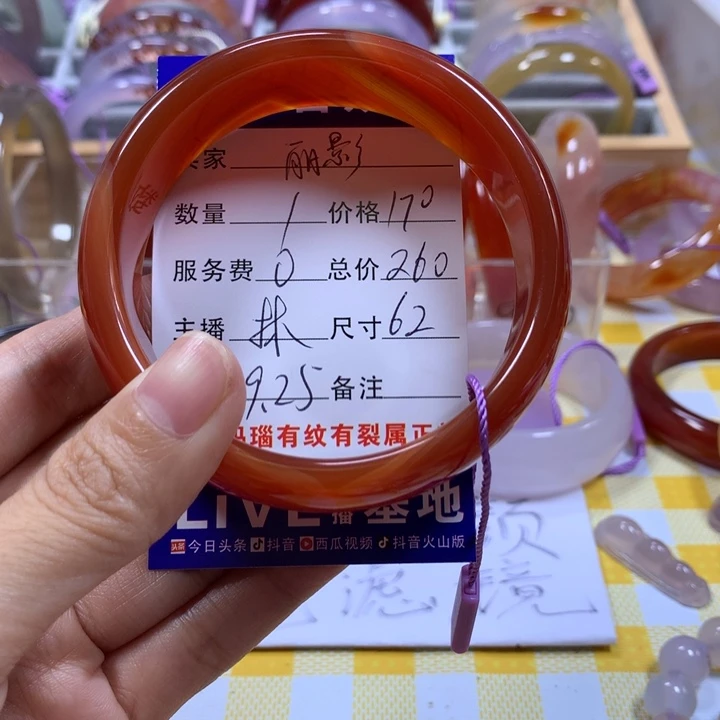 家 丽影
数量 1 价格 170
服务费 0 总价 260
主播 林 尺寸 62
9.25 备注
瑙有纹有裂属正
LIVE 播基地
头条 今日头条 抖音 西瓜视频 抖音火山版
滤镜